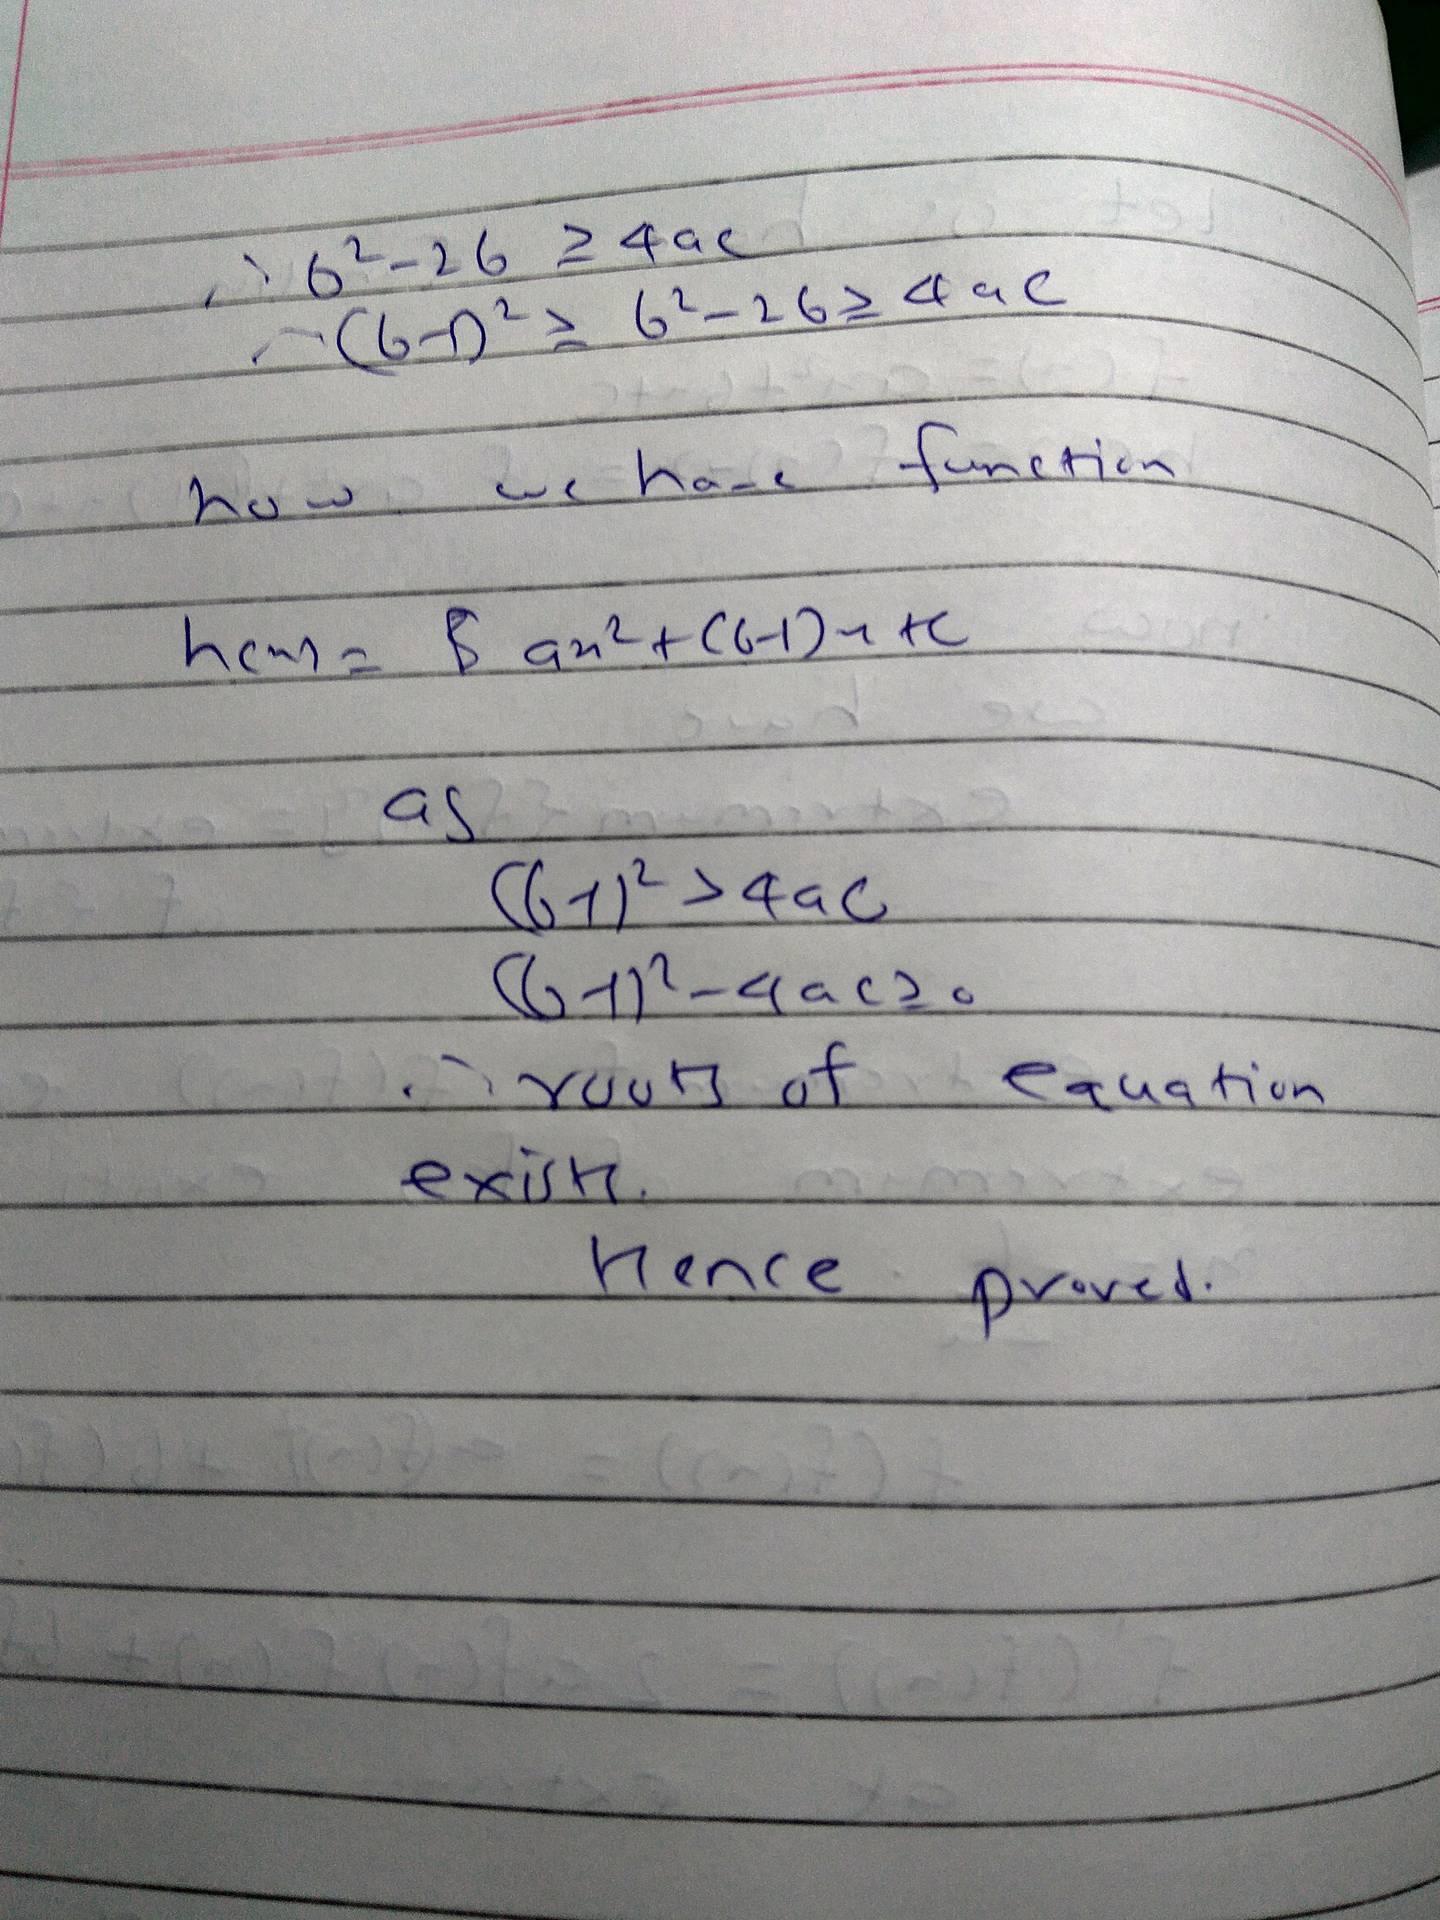 ∴ b²-2b ≥ 4ac
∴ (b-1)² ≥ b²-2b ≥ 4ac
now we have function
h(x) = ax²+(b-1)x+c
as
(b-1)² > 4ac
(b-1)²-4ac ≥ 0
∴ roots of equation
exists.
Hence proved.